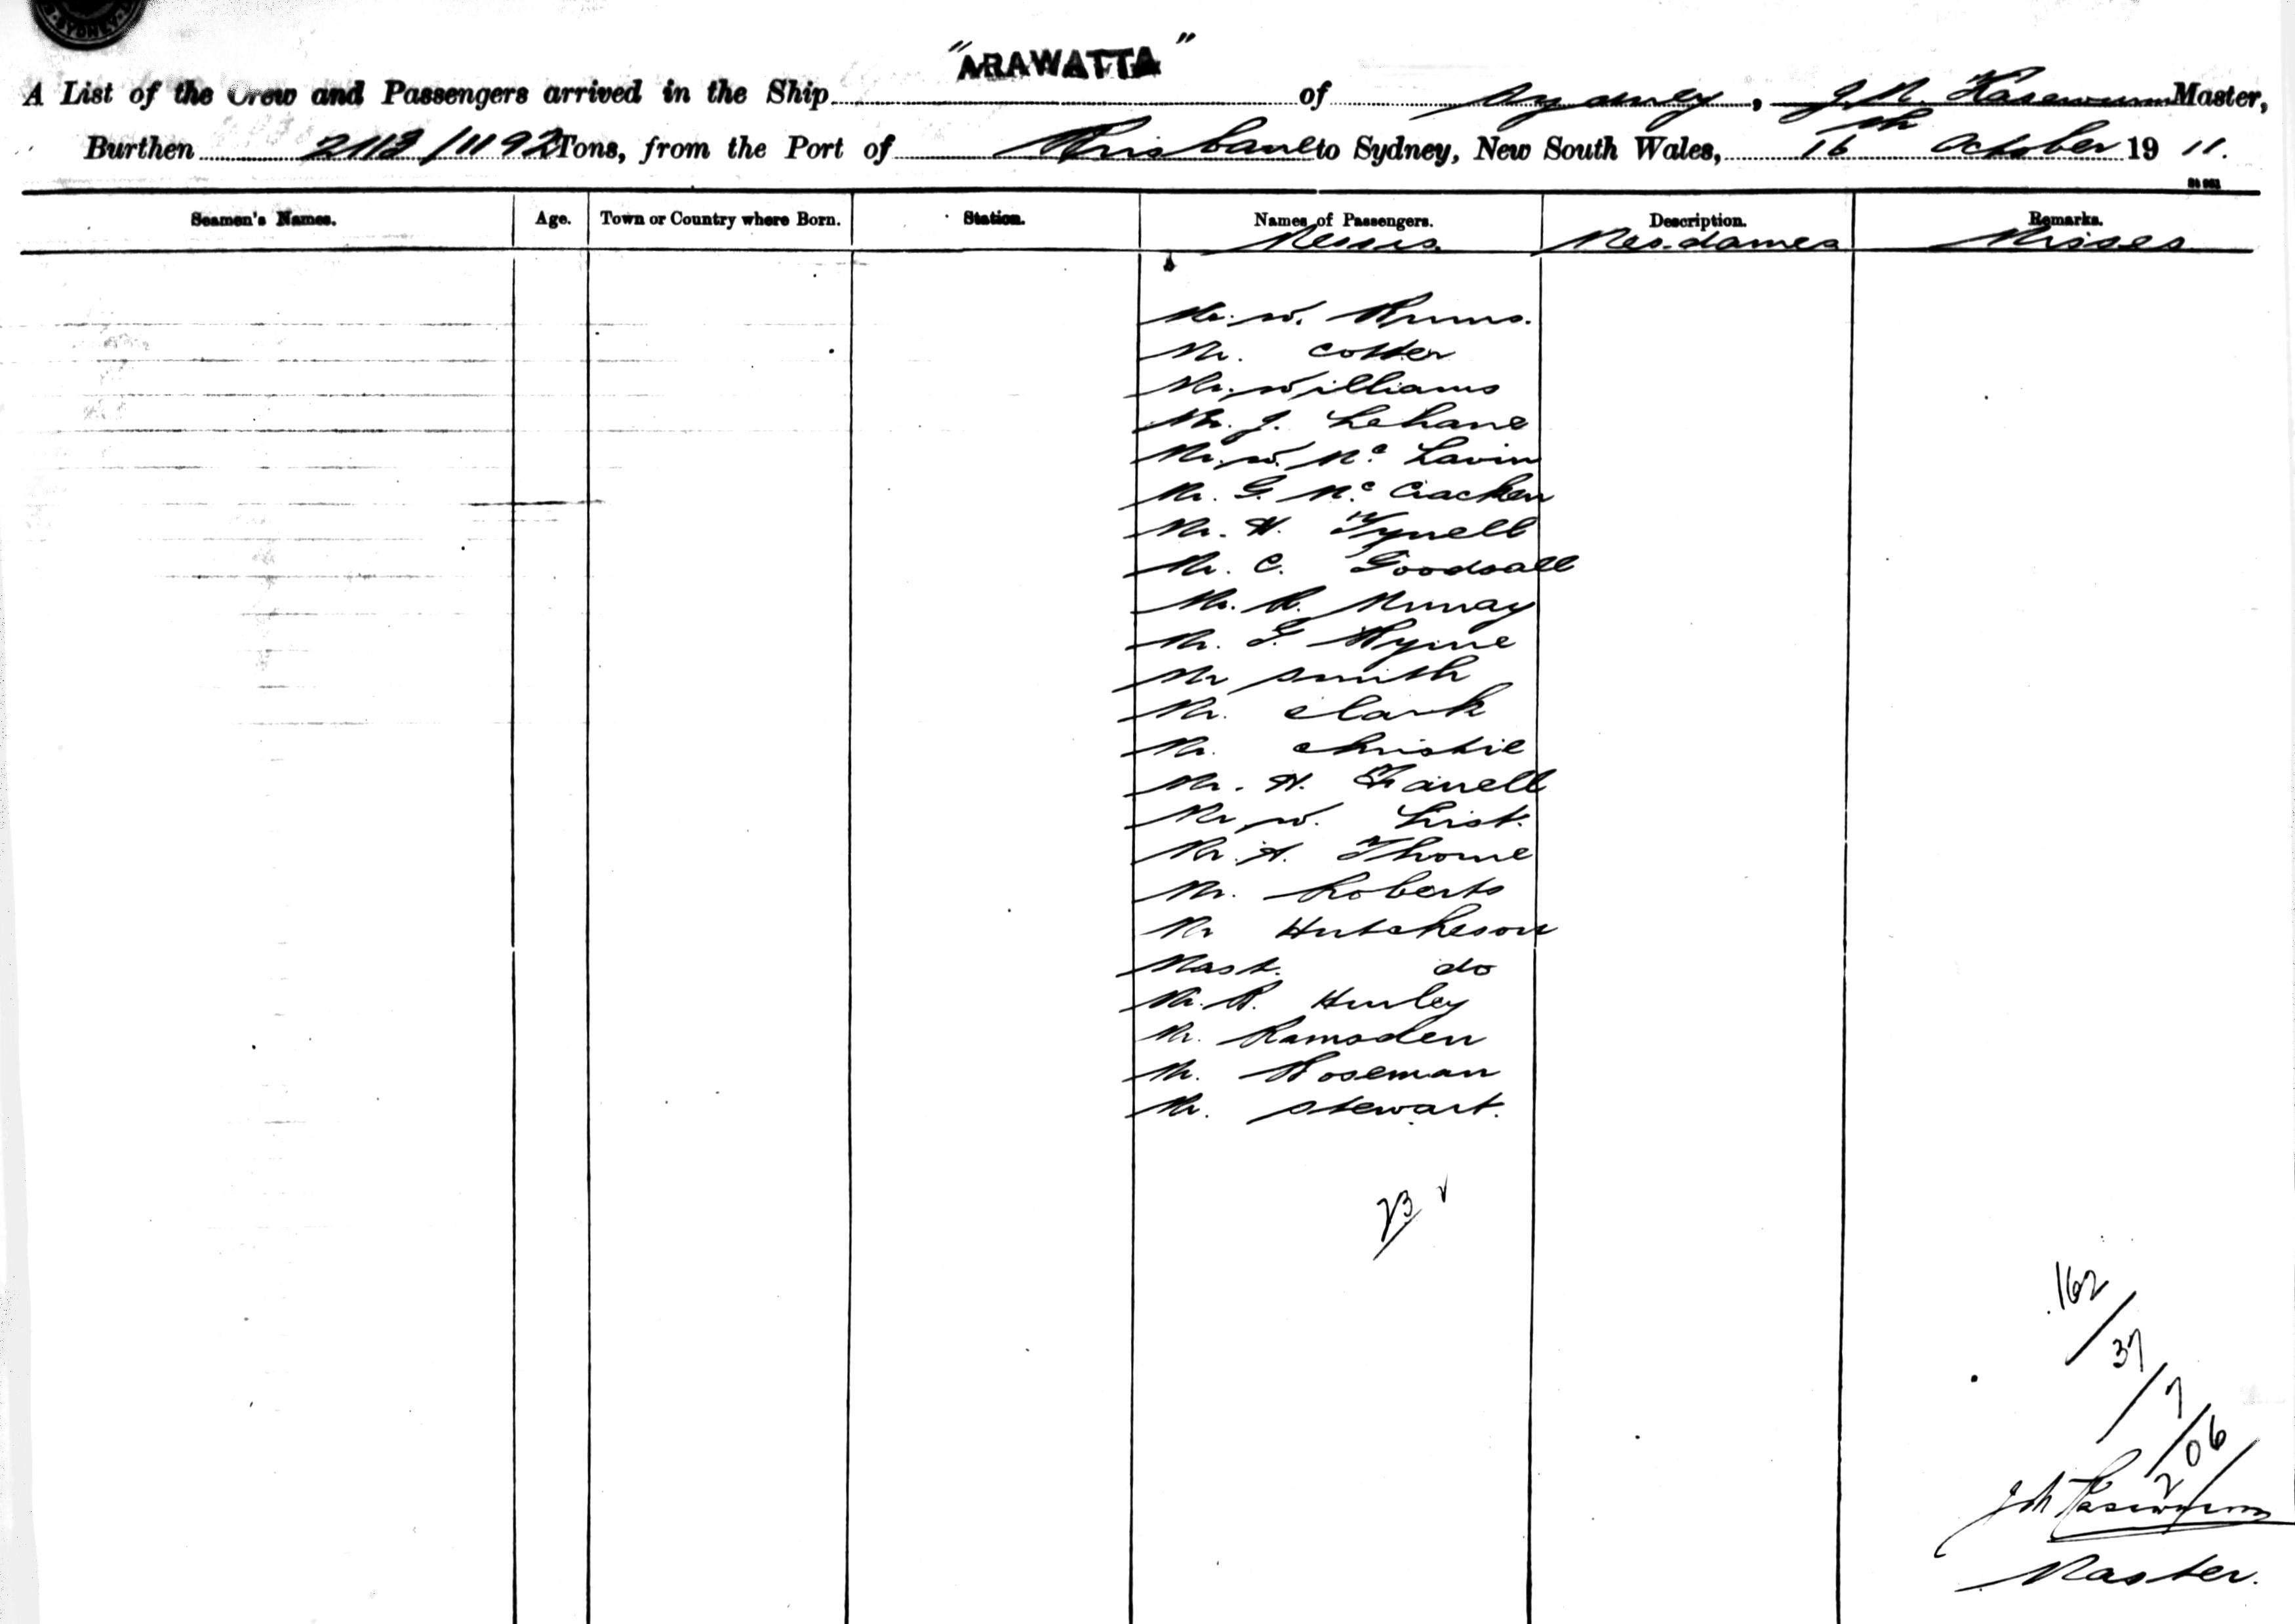 SYDNEY
"ARAWATTA"
A List of the Crew and Passengers arrived in the Ship of Sydney, Master,
Burthen 2113/1192 Tons, from the Port of Brisbane to Sydney, New South Wales, 16th October 19 11.
Seamen's Names. Age. Town or Country where Born. Station. Names of Passengers. Description. Remarks.
Messrs. Mesdames Misses
Mr. W. Burns.
Mr. Cotter
Mr. Williams
Mr. J. Lehane
Mr. W. Mc Lavin
Mr. G. Mc Cracken
Mr. H. Tyrrell
Mr. C. Goodsall
Mr. R. Murray
Mr. G. Hyme
Mr Smith
Mr. Clark
Mr. Christie
Mr. H. Farrell
Mr W. List.
Mr. A. Thorne
Mr. Roberts
Mr Hutcheson
Mast. do
Mr. R. Hurley
Mr. Ramsden
Mr. Boseman
Mr. Stewart.
23
162
37
7
206
Master.